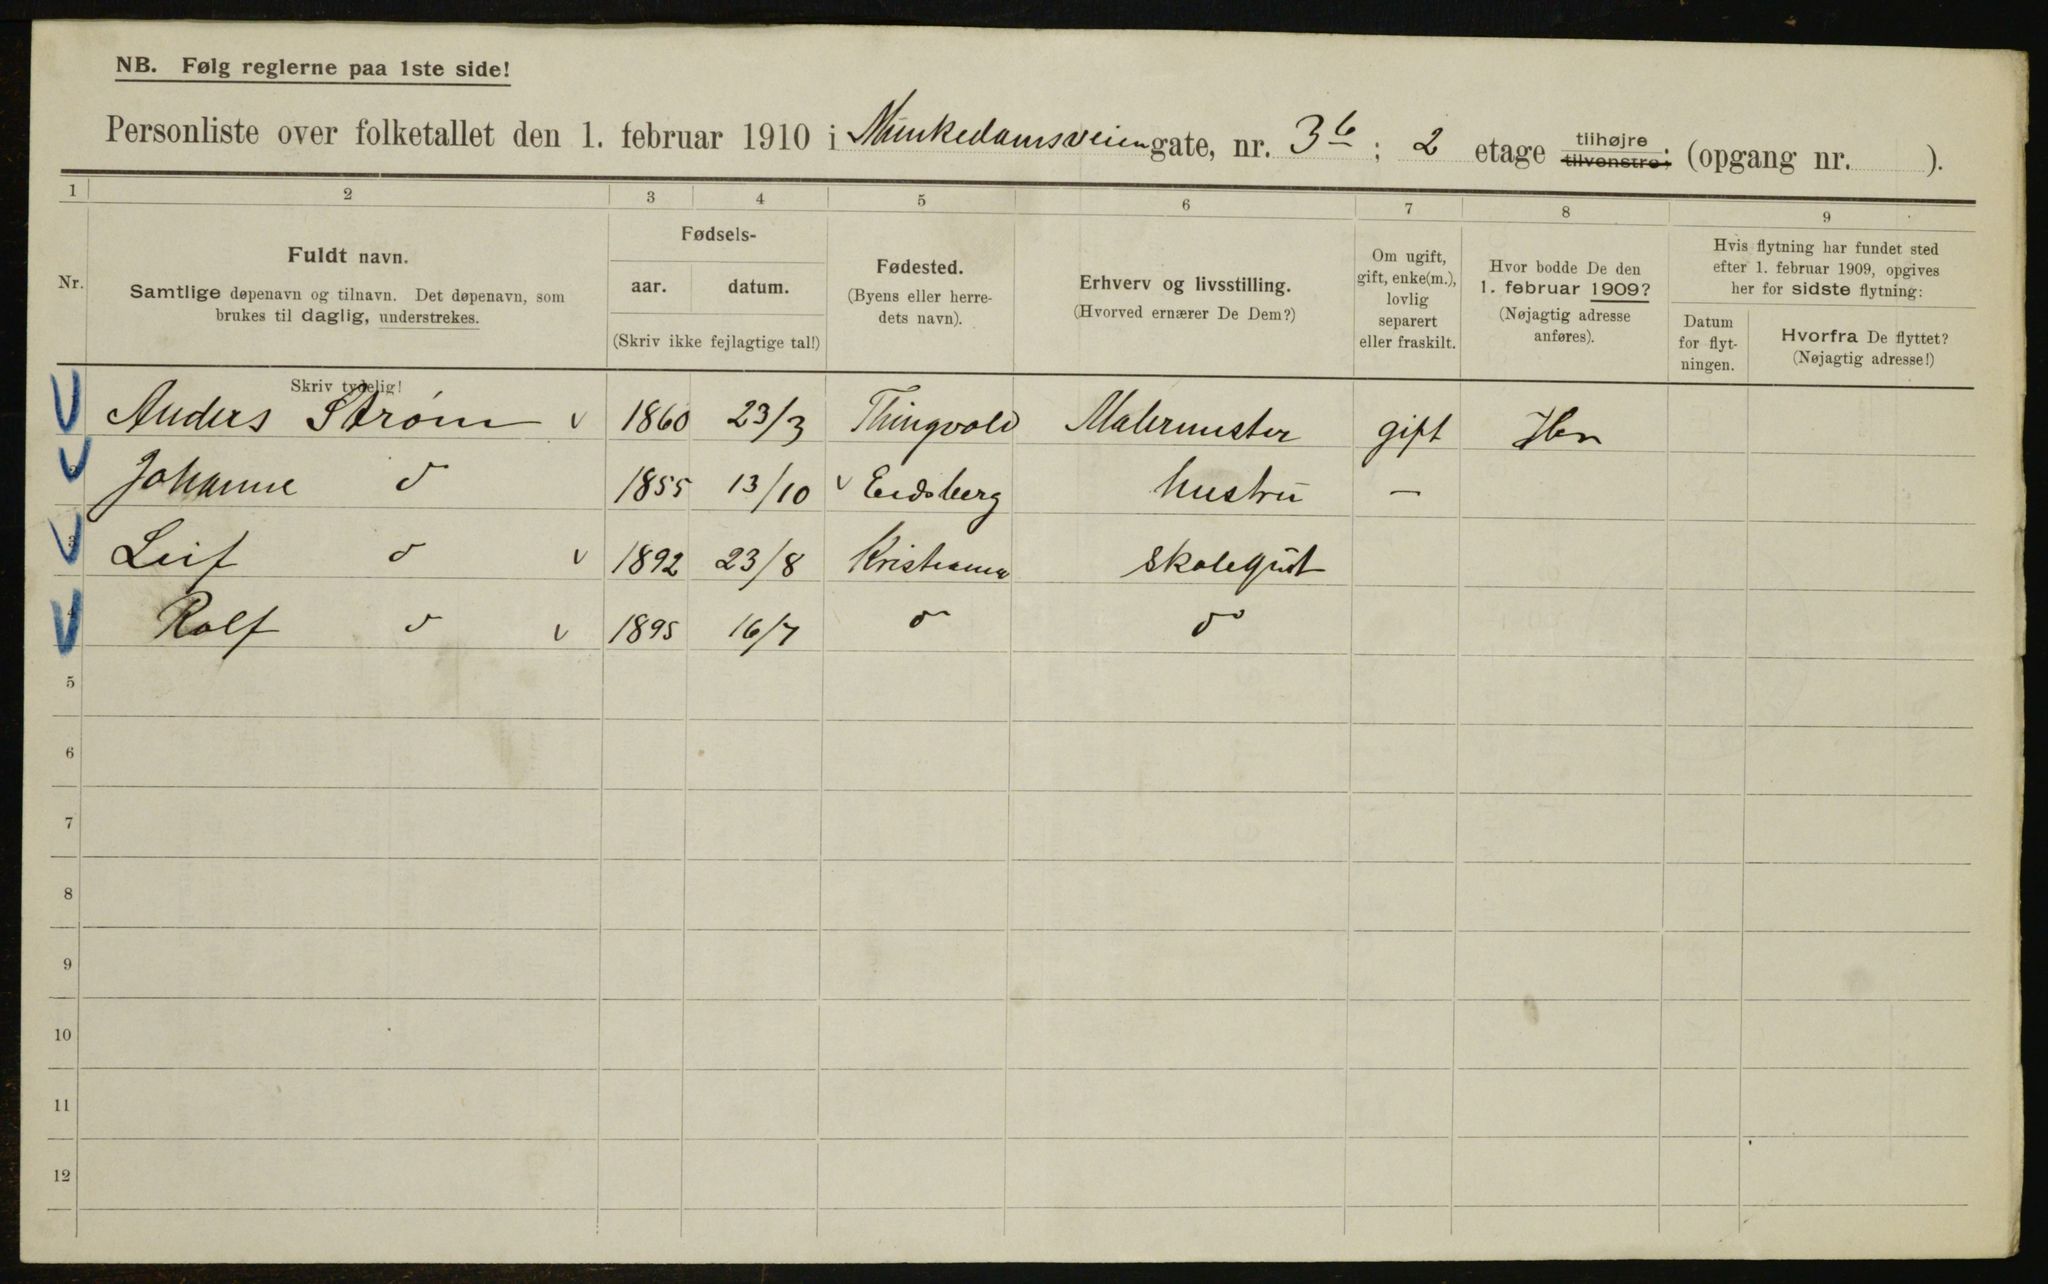 NB. Følg reglerne paa 1ste side!
Personliste over folketallet den 1. februar 1910 i Munkedamsveien gate, nr. 3b; 2 etage tilhøjre tilvenstre; (opgang nr. ).
1 2 3 4 5 6 7 8 9
Nr.
Fuldt navn.
Samtlige døpenavn og tilnavn. Det døpenavn, som
brukes til daglig, understrekes.
Skriv tydelig!
Fødsels-
aar. datum.
(Skriv ikke fejlagtige tal!)
Fødested.
(Byens eller herre-
dets navn).
Erhverv og livsstilling.
(Hvorved ernærer De Dem?)
Om ugift,
gift, enke(m.),
lovlig
separert
eller fraskilt.
Hvor bodde De den
1. februar 1909?
(Nøjagtig adresse
anføres).
Hvis flytning har fundet sted
efter 1. februar 1909, opgives
her for sidste flytning:
Datum
for flyt-
ningen.
Hvorfra De flyttet?
(Nøjagtig adresse!)
Anders Strøm v 1860 23/3 Thingvold Malermester gift Her
2 Johanne d 1855 13/10 v Eidsberg hustru —
3 Leif d v 1892 23/8 Kristiania skolegut
4 Rolf d v 1895 16/7 d do
5
6
7
8
9
10
11
12